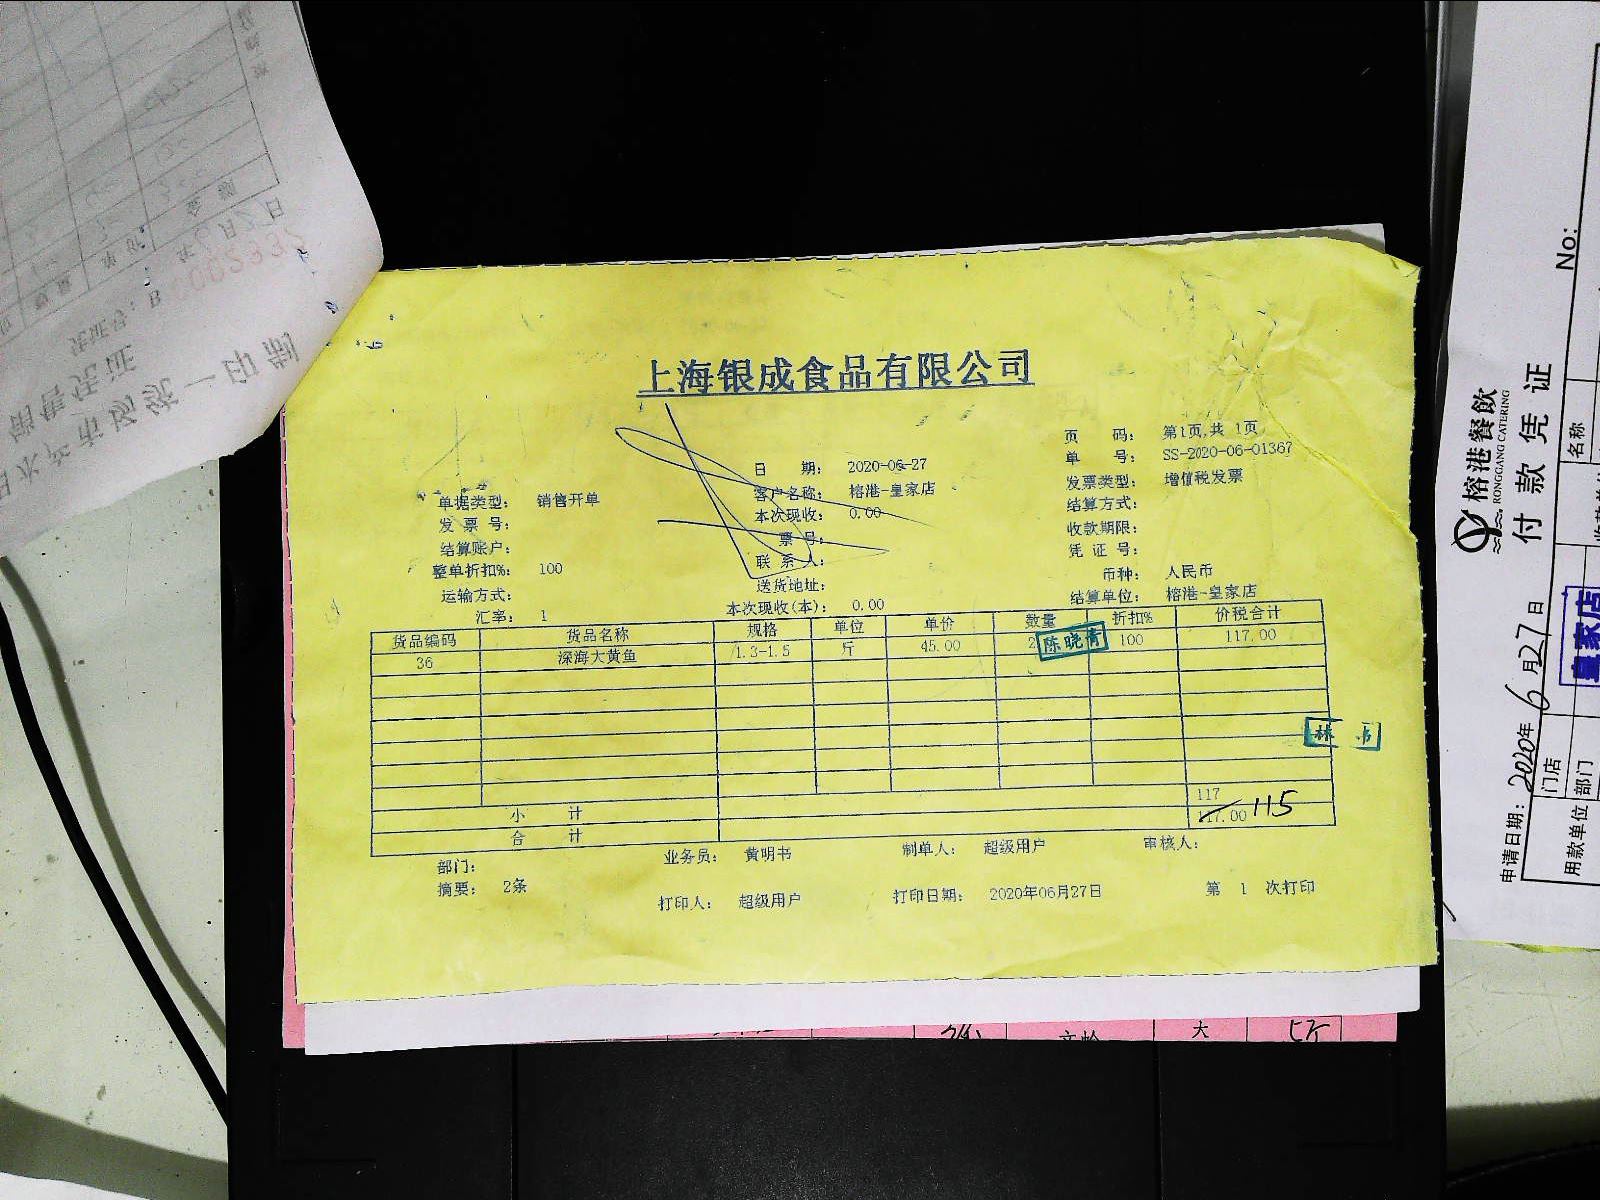 上海银成食品有限公司
页 码： 第1页,共 1页
单 号： SS-2020-06-01367
日 期： 2020-06-27
发票类型： 增值税发票
单据类型： 销售开单
客户名称： 榕港-皇家店
结算方式：
发 票 号：
本次现收： 0.00
收款期限：
结算账户：
票 号：
凭 证 号：
整单折扣%： 100
联 系 人：
币种： 人民币
运输方式：
送货地址：
结算单位： 榕港-皇家店
汇率： 1
本次现收(本)： 0.00
货品编码 货品名称 规格 单位 单价 数量 折扣% 价税合计
36 深海大黄鱼 1.3-1.5 斤 45.00 2 100 117.00
陈晓青
林
小 计 117
合 计 117.00 115
部门： 业务员： 黄明书 制单人： 超级用户 审核人：
摘要： 2条
打印人： 超级用户 打印日期： 2020年06月27日 第 1 次打印
大
榕港餐飲
RONGGANG CATERING
付款凭证
No:
申请日期：2020年6月27日
用款单位
门店
部门
皇家店
名称